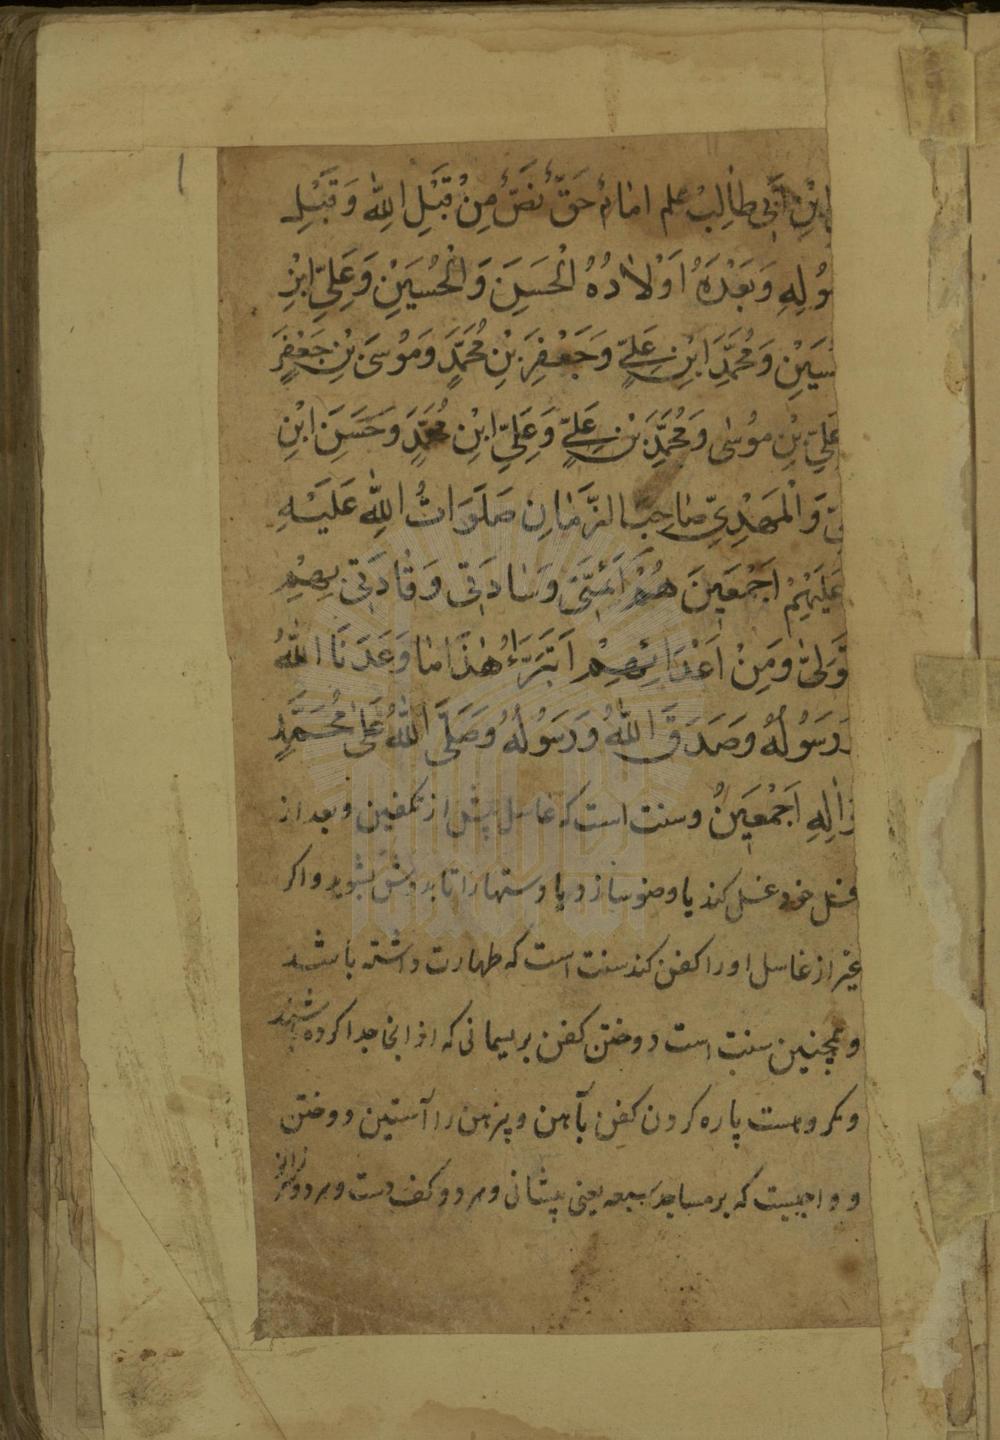 ابْنِ اَبِی طٰالِبْ علم امٰامُ حَقٍّ نَصٌّ مِنْ قِبَلِ اللّٰهِ وَ قَبْلِ
وُلِهِ وَ بَعْدَهُ اَوْلٰادُهُ الْحَسَنِ وَ الْحُسَیْنِ وَ عَلِیِّ ابْنِ
سَیْنِ وَ مُحَمَّدِ ابْنِ عَلِیٍّ وَ جَعْفَرِ بْنِ مُحَمَّدٍ وَ مُوسَی بْنِ جَعْفَرٍ
عَلِیِّ بْنِ مُوسٰی وَ مُحَمَّدِ بْنِ عَلِیٍّ وَ عَلِیِّ ابْنِ مُحَمَّدٍ وَ حَسَنِ ابْنِ
یٍّ وَ الْمَهْدِیِّ صٰاحِبِ الزَّمٰانِ صَلَوَاتُ اللّٰهِ عَلَیْهِ
عَلَیْهِمْ اَجْمَعِینَ هُمْ اَئِمَّتِی وَ سٰادَتِی وَ قٰادَتِی بِهِمْ
تَوَلّٰی وَ مِنْ اَعْدَائِهِمْ اَتَبَرَّءُ هٰذَا مٰا وَعَدَنَا اللّٰهُ
وَ رَسُولُهُ وَ صَدَقَ اللّٰهُ وَ رَسُولُهُ وَ صَلَّی اللّٰهُ عَلٰی مُحَمَّدٍ
وَ اٰلِهِ اَجْمَعِینَ و سنت است که غاسل پیش از تکفین و بعد از
غسل خود غسل کند یا وضو سازد یا دستها را تا بدوش بشوید و اکر
غیر از غاسل او را کفن کند سنت است که طهارت داشته باشد
و همچنین سنت است دوختن کفن بریسمانی که از انجا جدا کرده باشند
و مکروهست پاره کردن کفن بآهن و پیرهن را آستین دوختن
و واجبست که بر مساجد سبعه یعنی پیشانی و هر دو کف دست و هر دو زانو